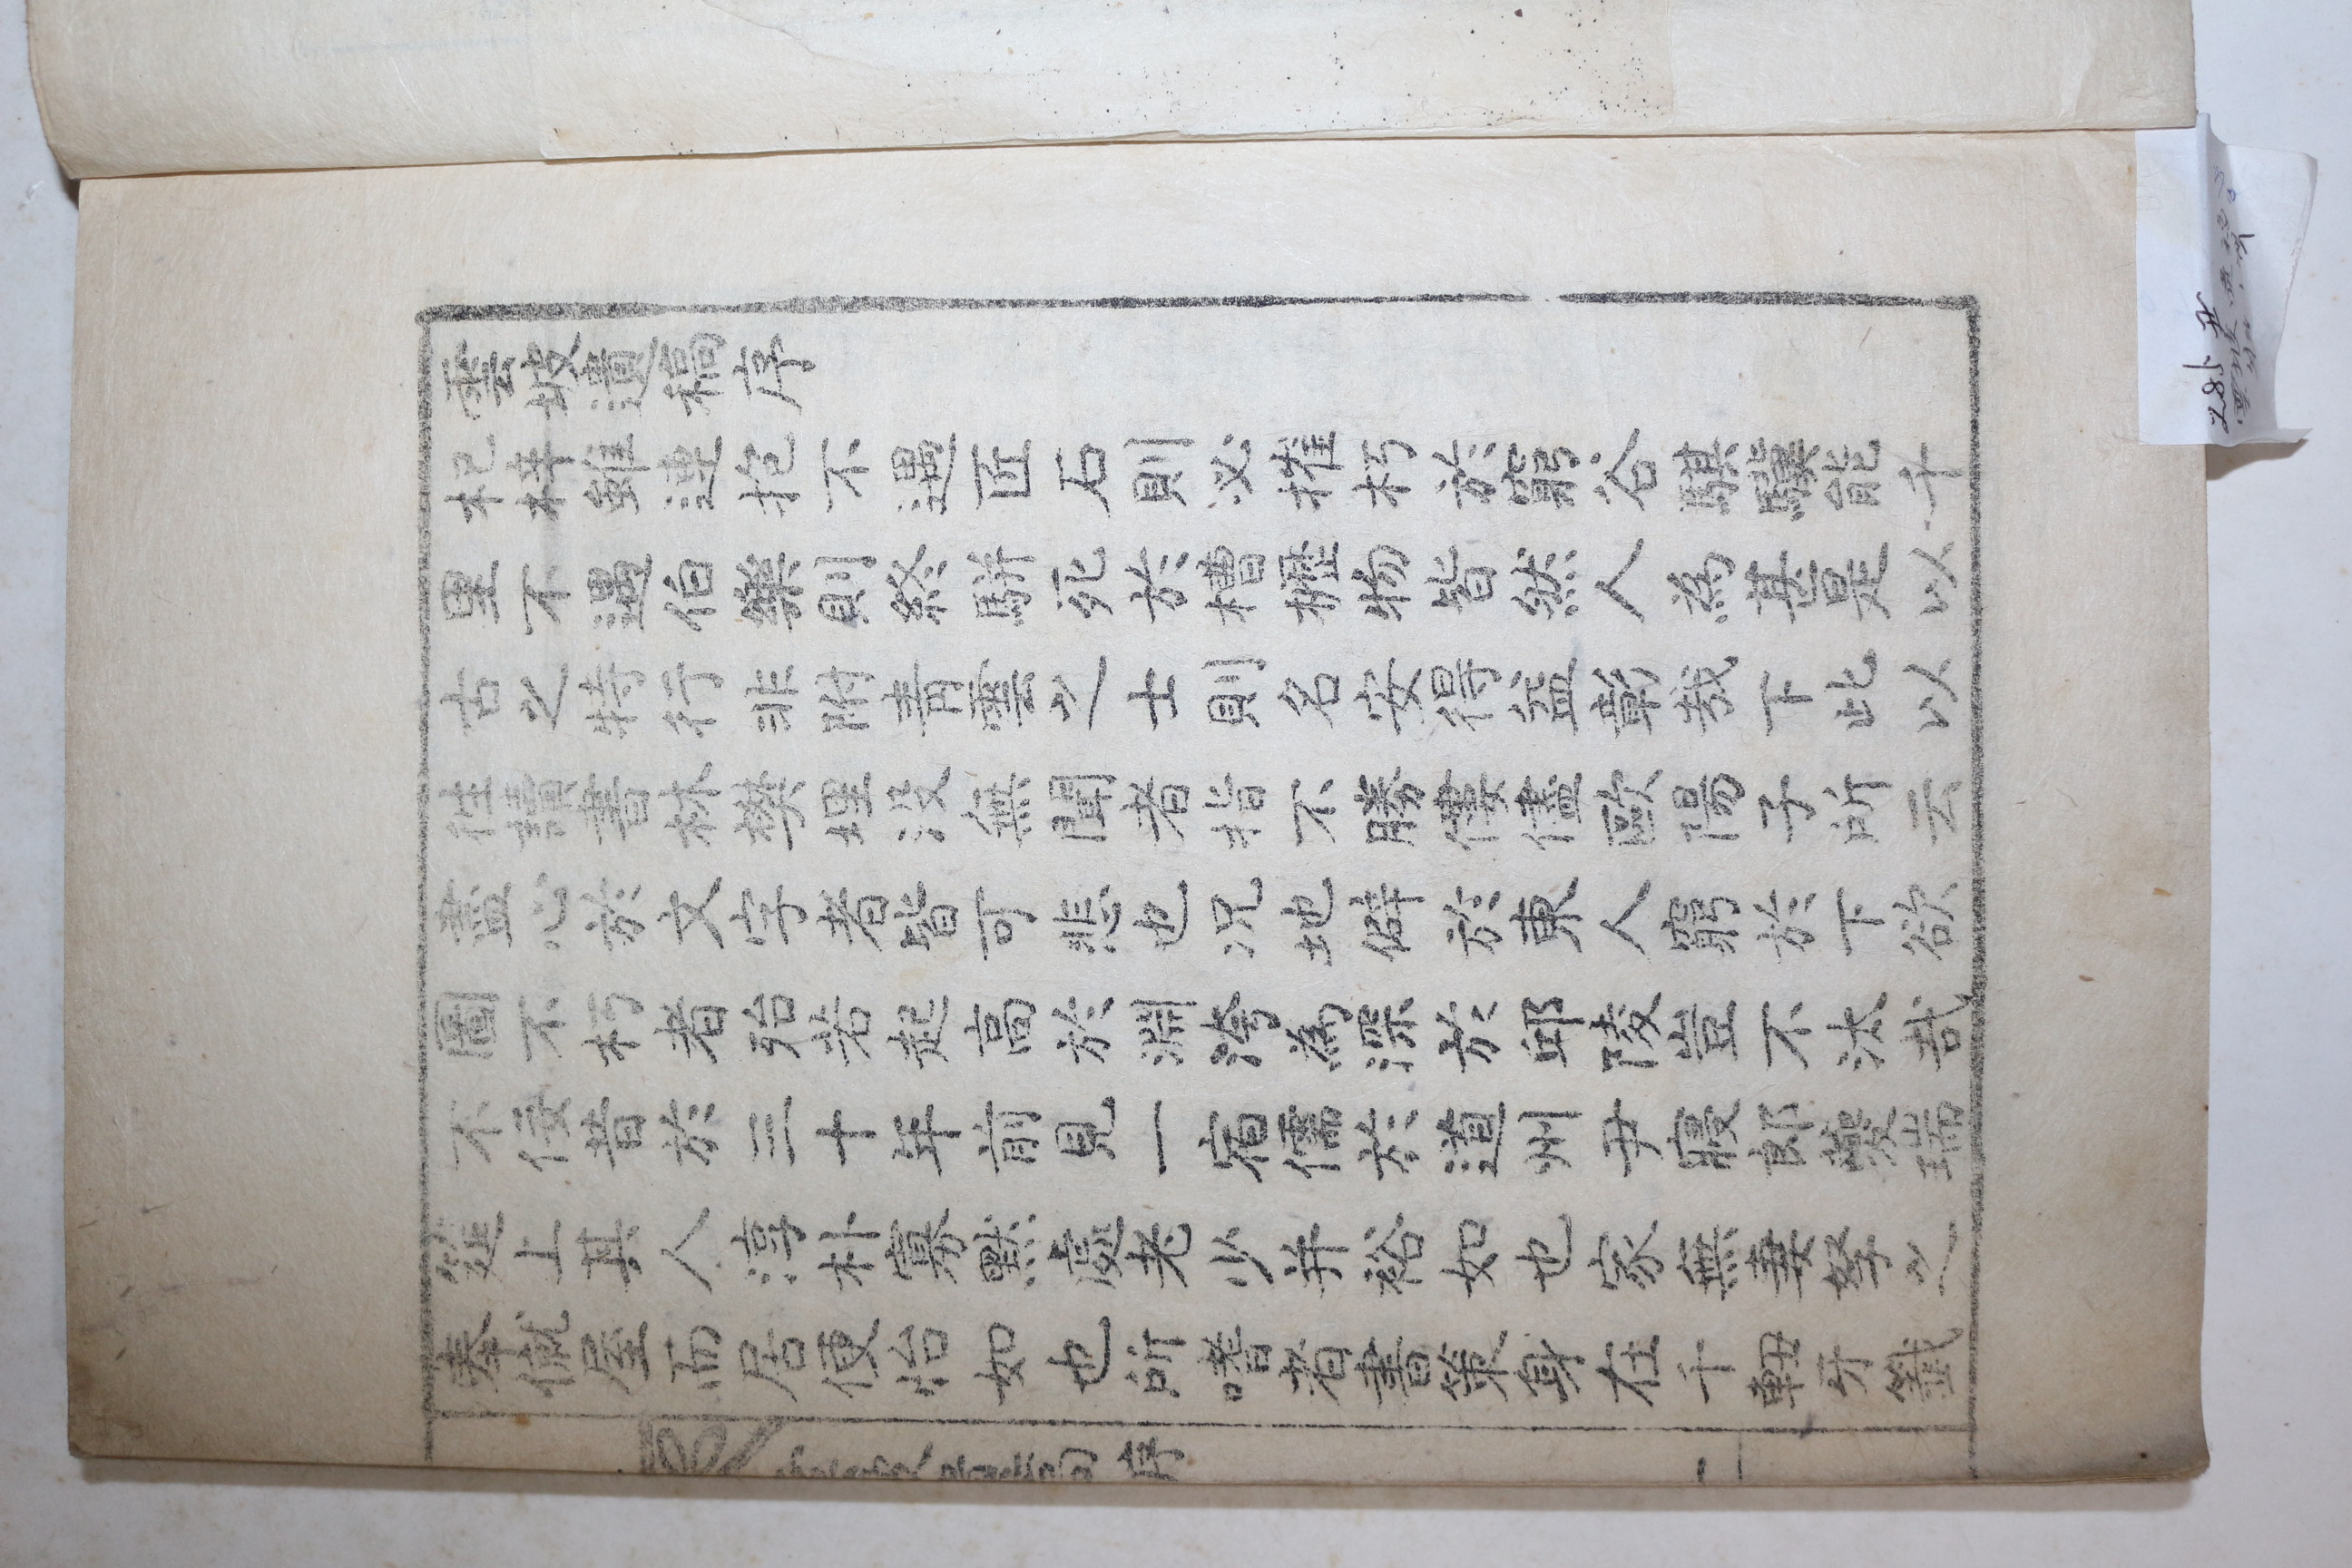 雲坡遺稿序
杞梓雖連抱不遇匠石則必摧朽於窮谷騏驥能千
里不遇伯樂則終駢死於槽櫪物皆然人為甚是以
古之特行非附青雲之士則名安得益彰哉下此以
往讀書林樊埋没無聞者指不勝僂儘歐陽子所云
盡心於文字者皆可悲也况地僻於東人窮於下欲
圖不朽者殆若起高於淵洿為深於邱陵豈不汰哉
不佞昔於三十年前見一宿儒於道州尹寢郎夔瑞
筵上其人淳朴寡默處老少并裕如也家無妻孥之
奉僦屋而居便怡如也所嗜者書策身在千軸牙籤
序
二
285